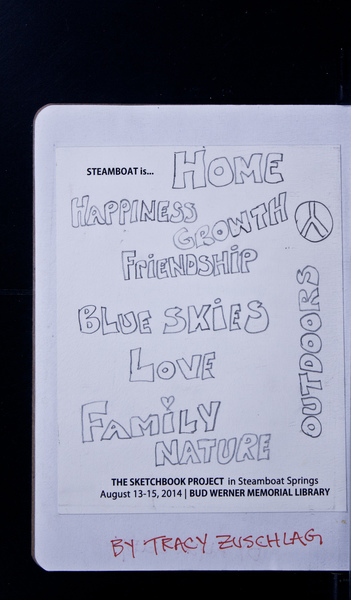 STEAMBOAT is... HOME
HAPPINESS
GROWTH
FRiENDSHiP
BLUE SKiES
LOVE
OUTDOORS
FAMiLY
NATURE
THE SKETCHBOOK PROJECT in Steamboat Springs
August 13-15, 2014 | BUD WERNER MEMORIAL LIBRARY
BY TRACY ZUSCHLAG